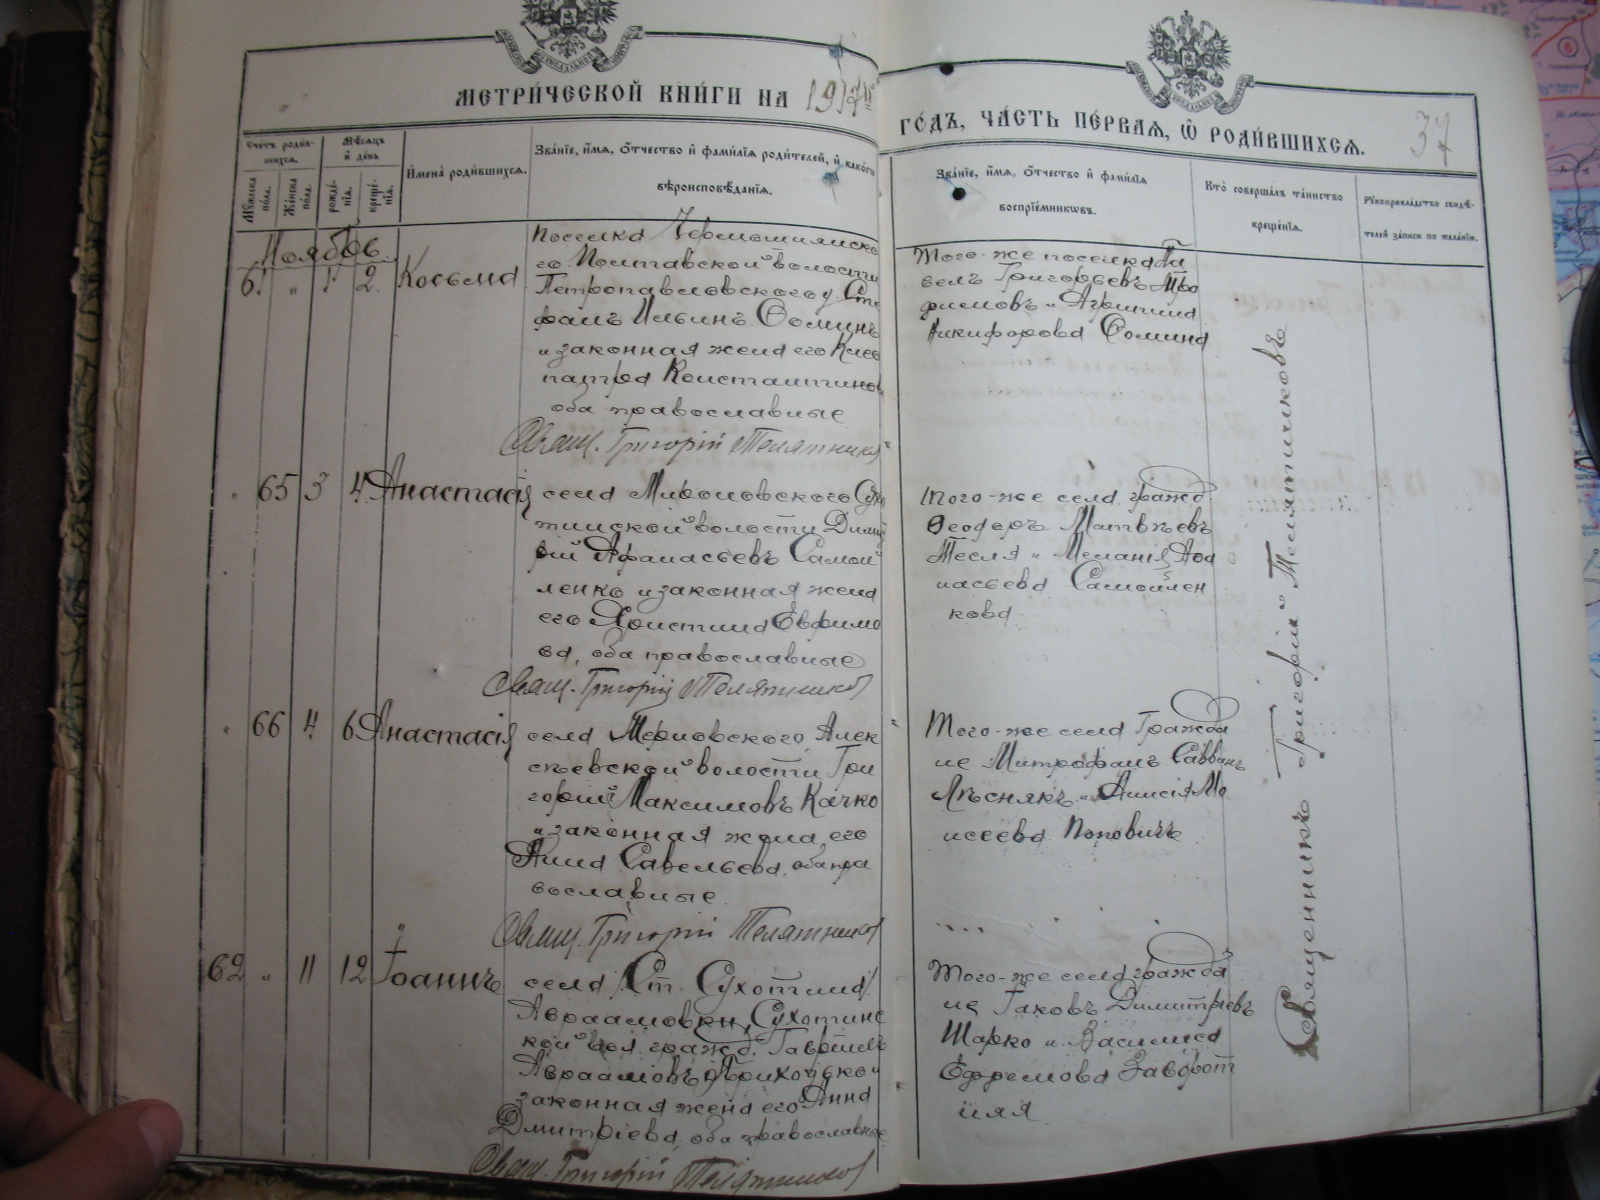 МЕТРИ́ЧЕСКОЙ КНИ́ГИ НА 1917й
ГО́ДЪ, ЧА́СТЬ ПЕ́РВАЯ, Ѽ РОДИ́ВШИХСЯ.
37
Сче́тъ роди́в-
шихся.
Мѣ́сяцъ
и҆ де́нь
Му́жеска по́ла.
Же́нска по́ла.
рожде́-
нія.
креще́-
нія.
И҆мена̀ роди́вшихся.
Зва́ніе, и҆́мя, о҆́тчество и҆ фами́лія роди́телей, и҆ како́гѡ
вѣроисповѣ́данія.
Зва́ніе, и҆́мя, о҆́тчество и҆ фами́лія
воспріе́мникѡвъ.
Кто̀ соверша́лъ та́инство
креще́нія.
Рꙋкоприкла́дство свидѣ́-
телей за́писи по жела́нію.
Ноябрь.
61 „ 1 2 Косьма
поселка
го Полтавской волости
Петропавловского у. Сте
фанъ Ильинъ Ѳоминъ
и законная жена его Клео
патра Константинов
оба православные
Свящ. Григорій Телятников
Того-же поселка Па
велъ Григорьевъ Тро
фимовъ и Агрипина
Никифорова Ѳомина
„ 65 3 4 Анастасія
села Мироновского Сухо
тинской волости Дими
рій Афанасьевъ Самой
ленко и законная жена
его Христина Евфимо
ва, оба православные
Свящ. Григорій Телятников
Того-же села гражд.
Ѳеодоръ Матвѣевъ
Тесля и Меланія Афа
насьева Самойлен
кова
„ 66 4 6 Анастасія
села Алек
сѣевской волости Гри
горій Максимовъ Качко
и законная жена его
Анна Савельева, оба пра
вославные.
Свящ. Григорій Телятников
Того-же села Гражда
не Митрофанъ Саввинъ
Лѣснякъ и Анисія Мо
исеева Поповичъ
62 „ 11 12 Іоаннъ
села Ст. Сухотина
Авраамовки, Сухотинс
кой вол. гражд. Гавріилъ
Авраамовъ Приходько и
законная жена его Анна
Дмитріева, оба православные
Свящ. Григорій Телятников
Того-же села гражда
не Іаковъ Димитріевъ
Шарко и Василиса
Ефремова Заворот
няя
Священникъ Григорій Телятниковъ